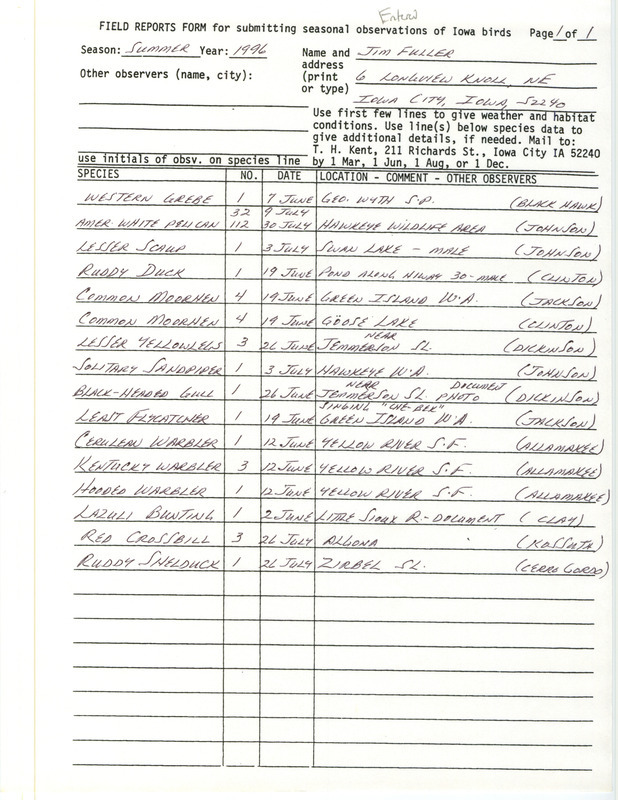 Entered
FIELD REPORTS FORM for submitting seasonal observations of Iowa birds Page 1 of 1
Season: SUMMER Year: 1996 Name and JIM FULLER
address
Other observers (name, city): (print 6 LONGVIEW KNOLL, NE
or type)
IOWA CITY, IOWA, 52240
Use first few lines to give weather and habitat
conditions. Use line(s) below species data to
give additional details, if needed. Mail to:
T. H. Kent, 211 Richards St., Iowa City IA 52240
use initials of obsv. on species line by 1 Mar, 1 Jun, 1 Aug, or 1 Dec.
SPECIES NO. DATE LOCATION - COMMENT - OTHER OBSERVERS
WESTERN GREBE 1 7 JUNE GEO. WYTH S.P. (BLACK HAWK)
32 9 JULY
AMER. WHITE PELICAN 112 30 JULY HAWKEYE WILDLIFE AREA (JOHNSON)
LESSER SCAUP 1 3 JULY SWAN LAKE - MALE (JOHNSON)
RUDDY DUCK 1 19 JUNE POND ALONG HIWAY 30-MALE (CLINTON)
COMMON MOORHEN 4 19 JUNE GREEN ISLAND W.A. (JACKSON)
COMMON MOORHEN 4 19 JUNE GOOSE LAKE (CLINTON)
NEAR
LESSER YELLOWLEGS 3 26 JUNE JEMMERSON SL. (DICKINSON)
SOLITARY SANDPIPER 1 3 JULY HAWKEYE W.A. (JOHNSON)
NEAR DOCUMENT
BLACK-HEADED GULL 1 26 JUNE JEMMERSON SL. PHOTO (DICKINSON)
SINGING "CHE-BEK"
LEAST FLYCATCHER 1 19 JUNE GREEN ISLAND W.A. (JACKSON)
CERULEAN WARBLER 1 12 JUNE YELLOW RIVER S.F. (ALLAMAKEE)
KENTUCKY WARBLER 3 12 JUNE YELLOW RIVER S.F. (ALLAMAKEE)
HOODED WARBLER 1 12 JUNE YELLOW RIVER S.F. (ALLAMAKEE)
LAZULI BUNTING 1 2 JUNE LITTLE SIOUX R.-DOCUMENT (CLAY)
RED CROSSBILL 3 26 JULY ALGONA (KOSSUTH)
RUDDY SHELDUCK 1 26 JULY ZIRBEL SL. (CERRO GORDO)